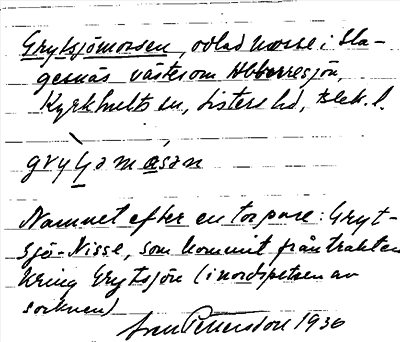 Grytsjömossen, odlad mosse i Sla-
gesnäs väster om Abborresjön,
Kyrkhults sn, Listers hd, Blek. l.
Namnet efter en torpare: Gryt-
sjö-Nisse, som kommit från trakten
kring Grytsjön (i nordspetsen av
socknen)
Sven Petersson 1930